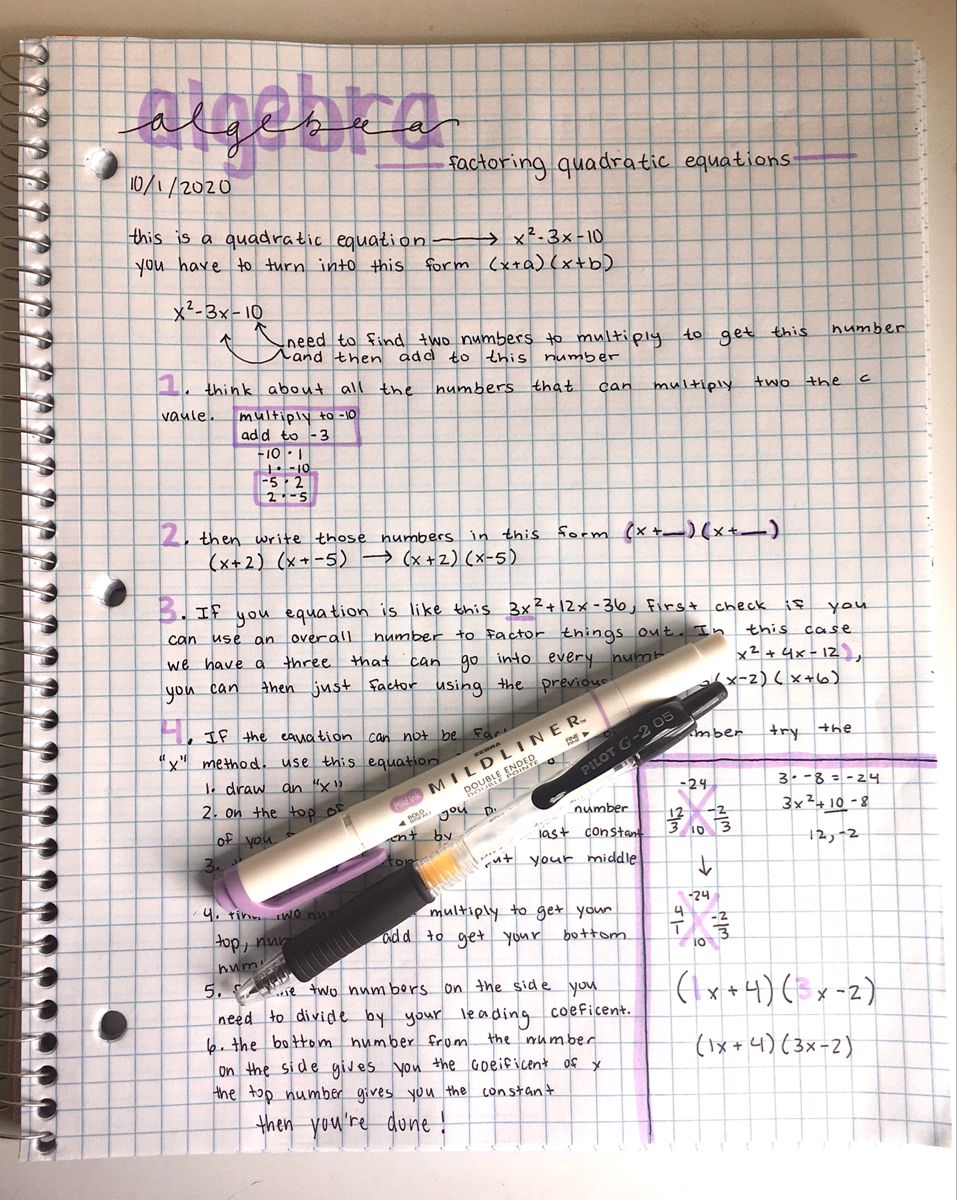 algebra
algebra
factoring quadratic equations
10/1/2020
this is a quadratic equation → x²-3x-10
you have to turn into this form (x+a)(x+b)
x²-3x-10
need to find two numbers to multiply to get this number
and then add to this number
1. think about all the numbers that can multiply two the c
vaule.
multiply to -10
add to -3
-10 · 1
1 · -10
-5 · 2
2 · -5
2. then write those numbers in this form (x+__)(x+__)
(x+2) (x+-5) → (x+2)(x-5)
3. If you equation is like this 3x²+12x-36, first check if you
can use an overall number to factor things out. In this case
we have a three that can go into every x²+4x-12),
you can then just factor using the (x-2)(x+6)
4. If the equation can not be try the
"x" method. use this equation
1. draw an "x"
2. on the top of you number
of you by last constant
3. your middle
4. multiply to get your
top, add to get your bottom
5. two numbers on the side you
need to divide by your leading coeficent.
6. the bottom number from the number
on the side gives you the coeificent of x
the top number gives you the constant
then you're done!
ZEBRA
MILDLINER™
DOUBLE ENDED
DOUBLE POINTE
Mild ink
BOLD
FINE
PILOT G-2 05
-24
12/3 -2/3
10
3 · -8 = -24
3x²+10-8
12, -2
↓
-24
4/1 -2/3
10
(1x+4)(3x-2)
(1x+4)(3x-2)